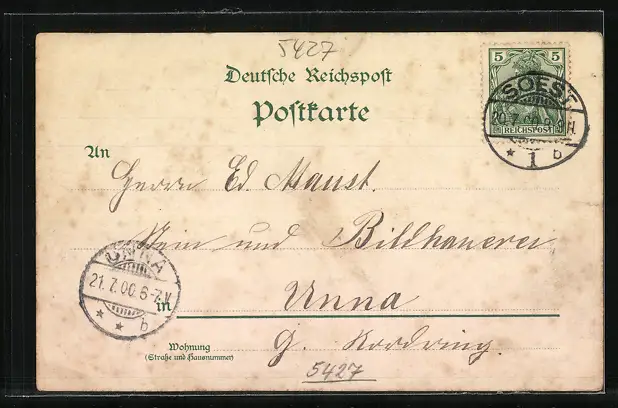 5427
Deutsche Reichspost
Postkarte
5 5
REICHSPOST
SOEST
20.7.00
1 b
An
Herrn Ed. Maust.
und Bildhauerei
UNNA
21.7.00.6-7.V.
b
in Unna
Wohnung
(Straße und Hausnummer)
G. Nordring.
5427